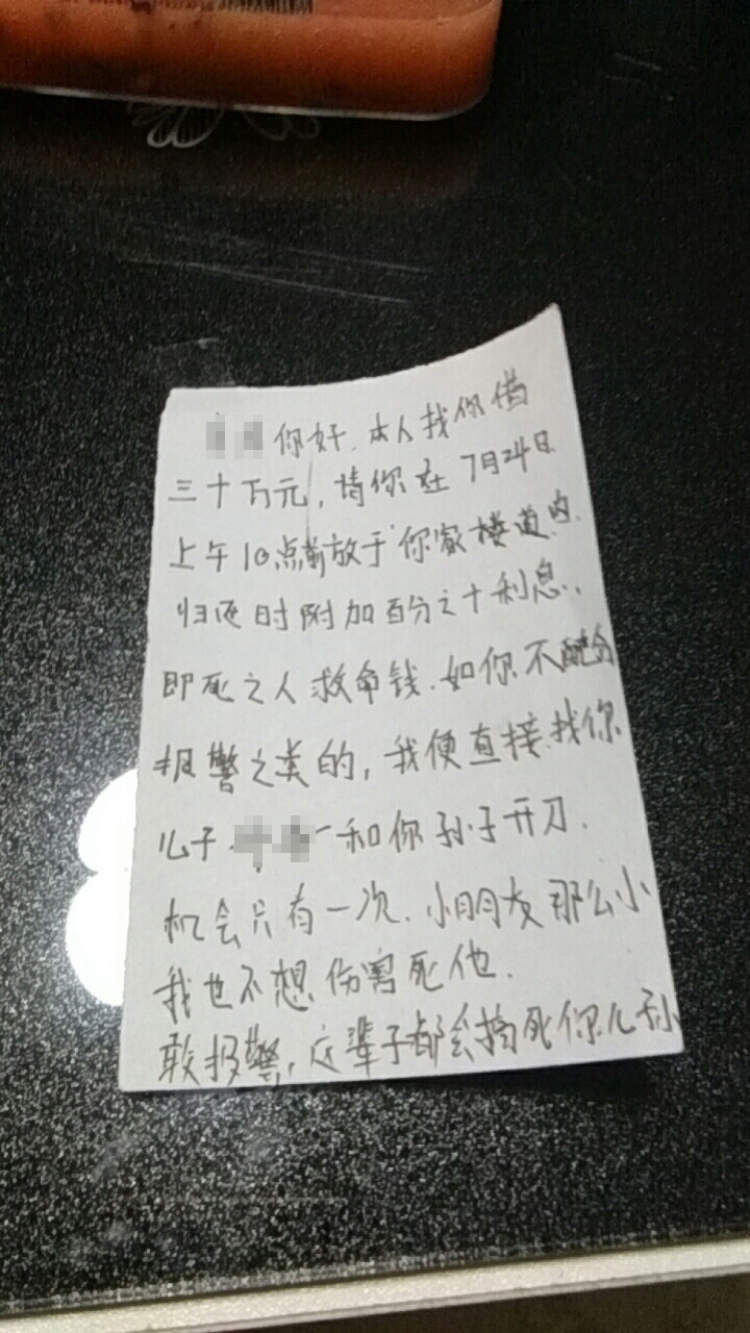 你好.本人找你借
三十万元,请你在7月24日
上午10点前放于你家楼道内.
归还时附加百分之十利息,
即死之人救命钱.如你不配合
报警之类的,我便直接找你
儿子 和你孙子开刀.
机会只有一次.小朋友那么小
我也不想伤害死他.
敢报警,这辈子都会搞死你儿孙